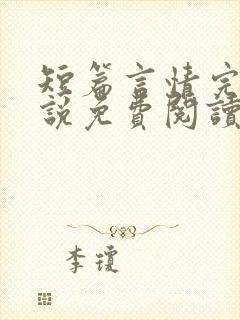 短篇言情完
說免費閱讀
李瓊